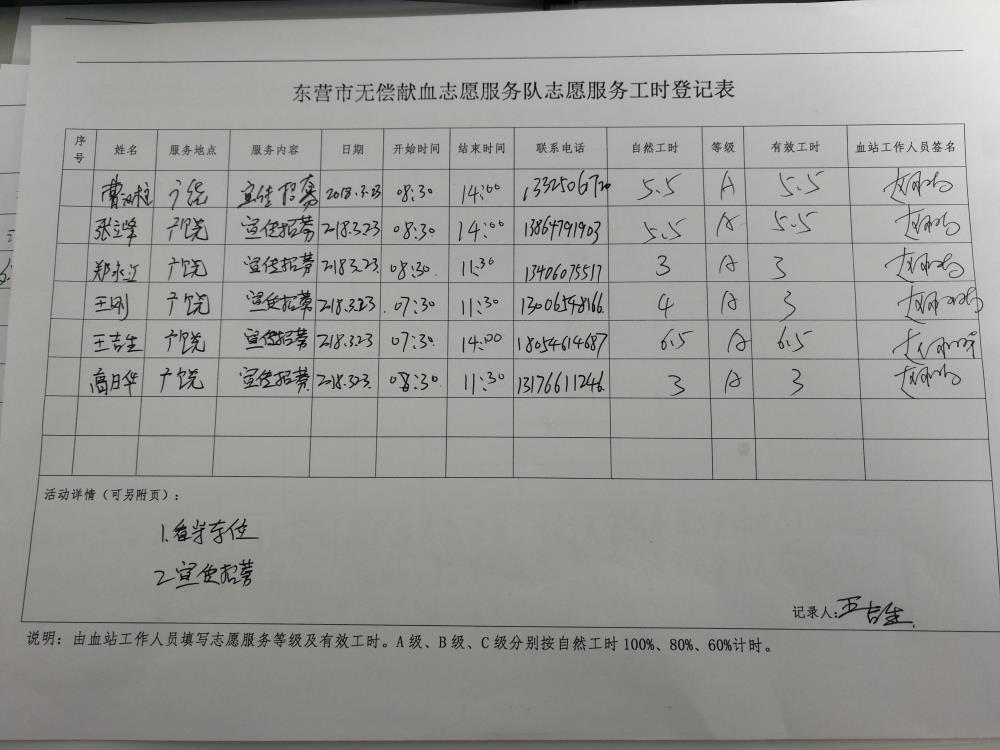 东营市无偿献血志愿服务队志愿服务工时登记表
序号 姓名 服务地点 服务内容 日期 开始时间 结束时间 联系电话 自然工时 等级 有效工时 血站工作人员签名
广饶 宣传招募 2018.3.23 08:30 14:00 5.5 A 5.5
张立峰 广饶 宣传招募 2018.3.23 08:30 14:00 13864791903 5.5 A 5.5
郑永江 广饶 宣传招募 2018.3.23 08:30 11:30 13406075517 3 A 3
王刚 广饶 宣传招募 2018.3.23 07:30 11:30 13006548166 4 A 3
王吉生 广饶 宣传招募 2018.3.23 07:30 14:00 18054614687 6.5 A 6.5
高月华 广饶 宣传招募 2018.3.23 08:30 11:30 13176611246 3 A 3
活动详情（可另附页）：
1.看半车位
2.宣传招募
记录人：王吉生
说明：由血站工作人员填写志愿服务等级及有效工时。A级、B级、C级分别按自然工时100%、80%、60%计时。